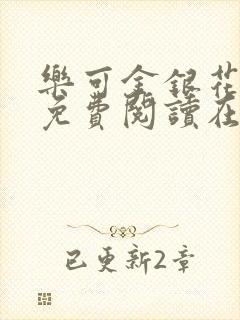 樂可金銀花
免費閱讀在
已更新2章